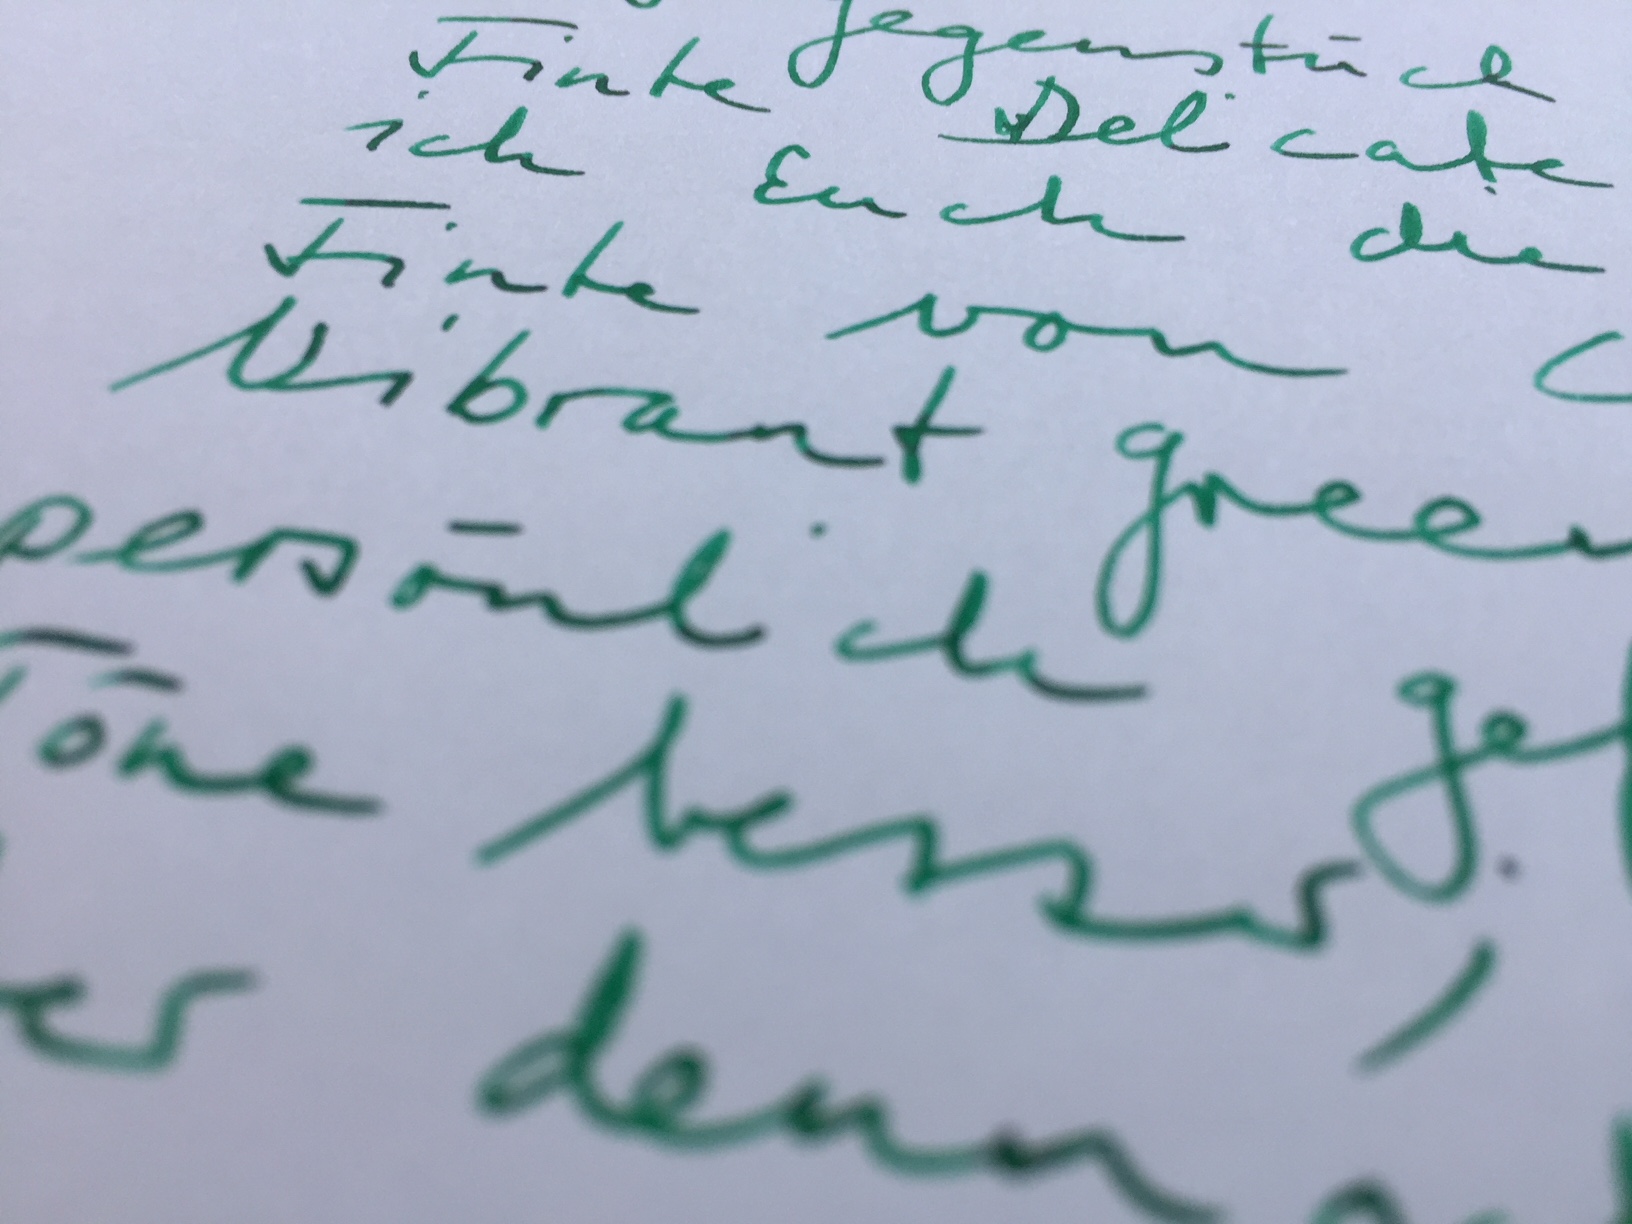 Gegenstück
Tinte Delicate
ich Euch die
Tinte von C
Vibrant green
persönlich gef
Töne besser,
es denn